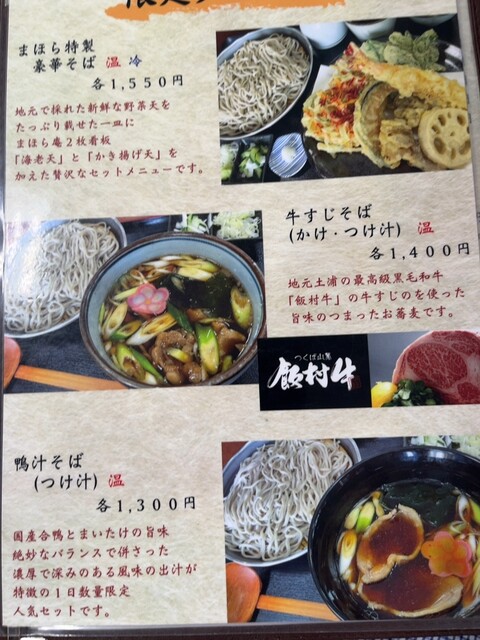 まほら特製
豪華そば 温 冷
各1,550円
地元で採れた新鮮な野菜天を
たっぷり載せた一皿に
まほら庵2枚看板
「海老天」と「かき揚げ天」を
加えた贅沢なセットメニューです。
牛すじそば
(かけ・つけ汁) 温
各1,400円
地元土浦の最高級黒毛和牛
「飯村牛」の牛すじのを使った
旨味のつまったお蕎麦です。
つくば山麓
飯村牛
鴨汁そば
(つけ汁) 温
1,300円
国産合鴨とまいたけの旨味
絶妙なバランスで併さった
濃厚で深みのある風味の出汁が
特徴の1日数量限定
人気セットです。